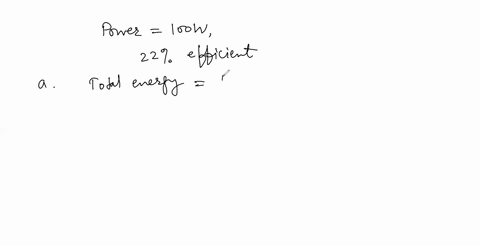 Power = 100W,
22% efficient
a. Total energy =